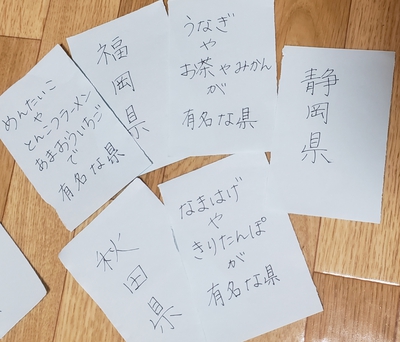 めんたいこ
や
とんこつラーメン
あまおういちご
で
有名な県
福岡県
うなぎ
や
お茶やみかん
が
有名な県
静岡県
秋田県
なまはげ
や
きりたんぽ
が
有名な県